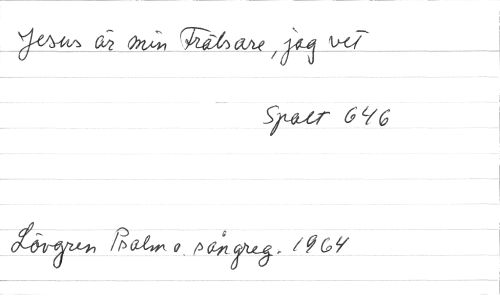 Jesus är min Frälsare, jag vet
Spalt 646
Lövgren Psalm o. sångreg. 1964